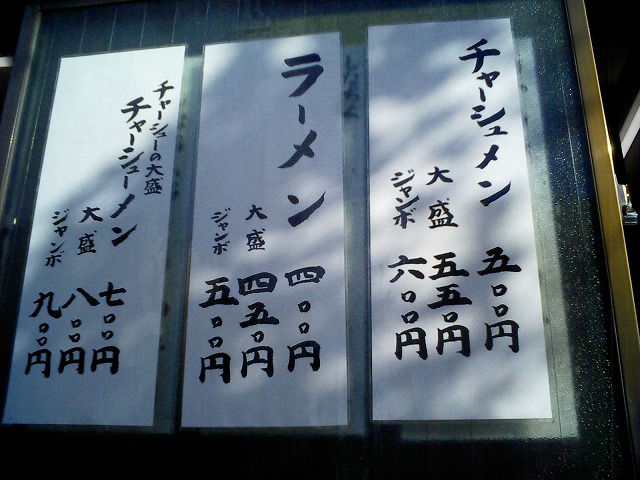 チャーシュメン 五〇〇円
大盛 五五〇円
ジャンボ 六〇〇円
ラーメン 四〇〇円
大盛 四五〇円
ジャンボ 五〇〇円
チャーシューの大盛
チャーシューメン 七〇〇円
大盛 八〇〇円
ジャンボ 九〇〇円